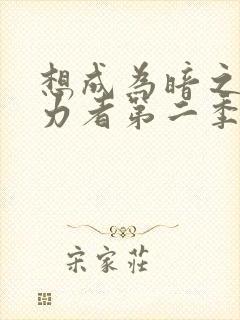 想成为暗之
力者第二季
宋家莊